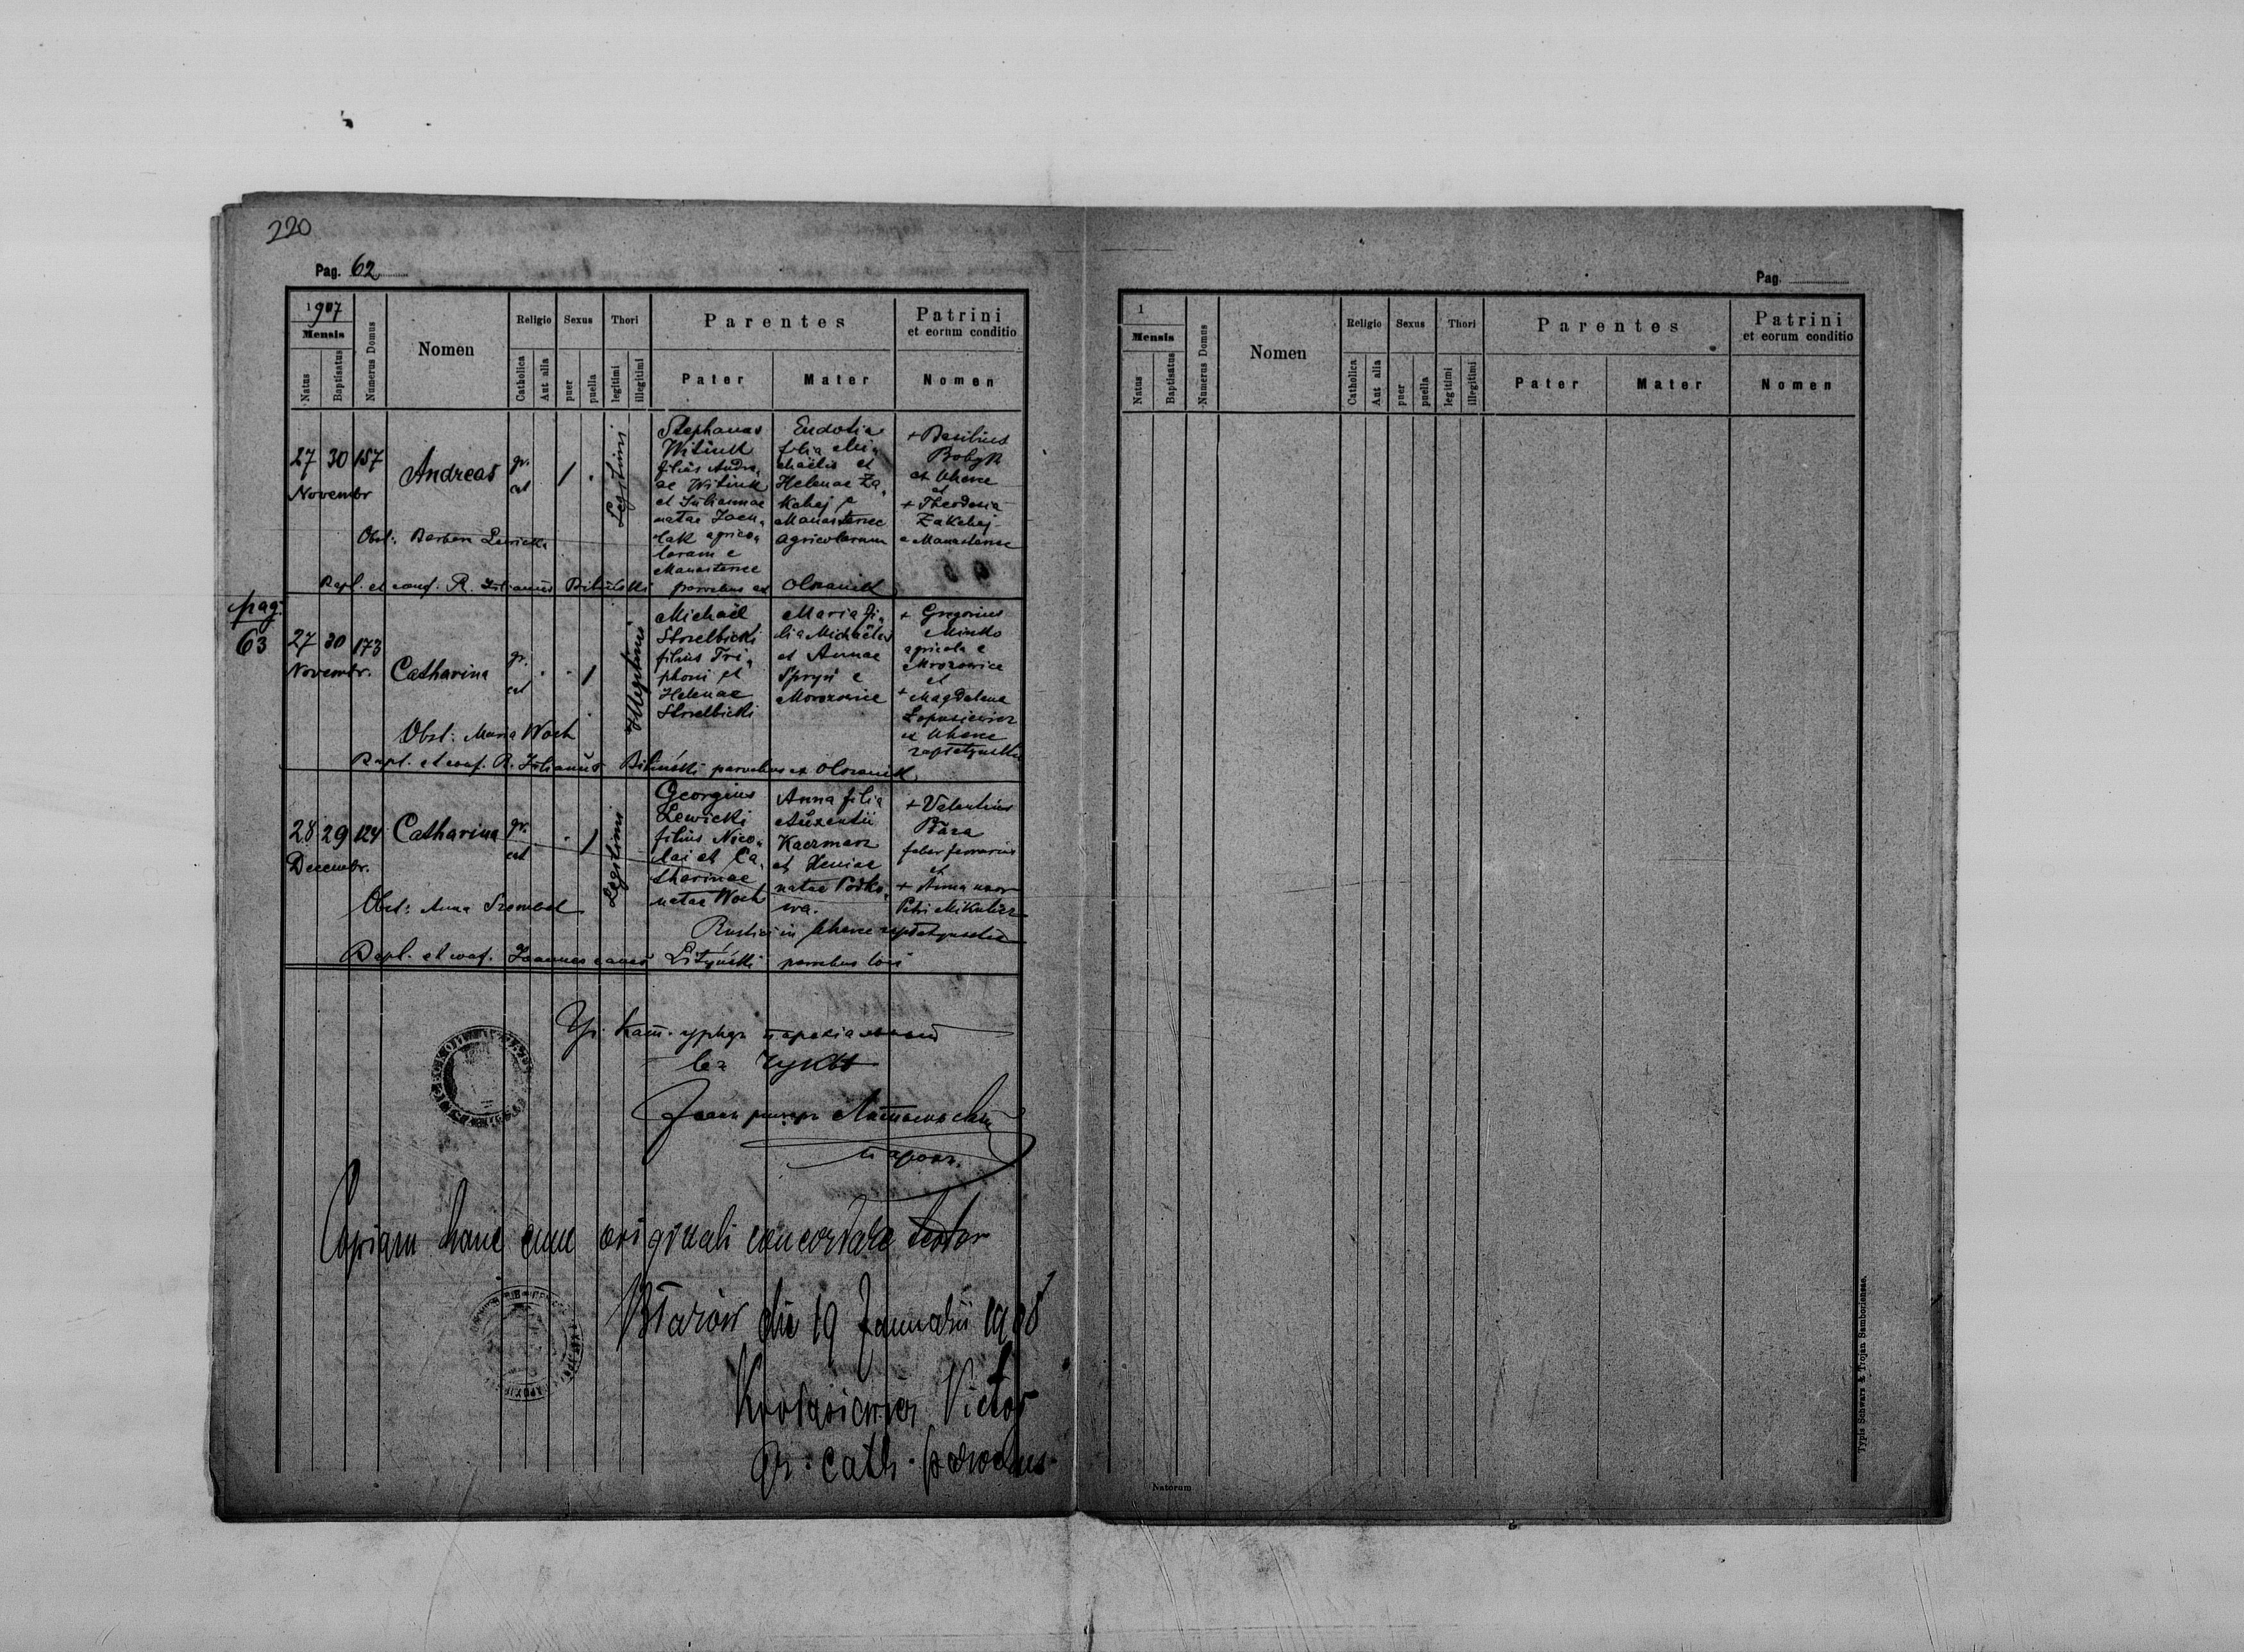 220
Pag. 62
1907
Mensis
Natus
Baptisatus
Numerus Domus
Nomen
Religio
Catholica
Aut alia
Sexus
puer
puella
Thori
legitimi
illegitimi
Parentes
Pater
Mater
Patrini
et eorum conditio
Nomen
27 30 157
Novembr
Andreas
gr.
cat
Legitimi
Stephanus
Witiuk
filius Andre-
ae Witiuk
et Juliannae
natae
agrico-
larum e
Manasterzec
Eudotia
filia Mi-
chaëlis et
Helenae Za-
kalej e
Manasterzec
agricolarum
+ Basilius
Bobyk
ex Uherce
et
+ Theodosia
Zakalej
e Manasterzec
Obst: Barbara Lewicka
Bapt. et conf. R. Julianus Biliński parochus ex Olszanik
pag.
63
27 30 173
Novembr.
Catharina
gr.
cat
Illegitimi
Michaël
Strzelbicki
filius Tri-
phoni et
Helenae
Strzelbicki
Maria fi-
lia Michaëlis
et Annae
Spryń e
Morozowice
+ Gregorius
Minko
agricola e
Mrozowice
et
+ Magdalena
Łopusiewicz
ex Uherce
zapłatyńskie
Obst: Maria Woch
Bapt. et conf. R. Julianus Biliński parochus ex Olszanik
28 29 124
Decembr.
Catharina
gr.
cat
Legitimi
Georgius
Lewicki
filius Nico-
lai et Ca-
tharinae
natae Woch
Anna filia
Auxentii
Kaczmarz
et Xeniae
natae Podko-
wa.
+ Valentinus
Bára
faber ferrarius
et
+ Anna uxor
Petri Mikulicz
Rustici in Uherce zapłatyńskie
Obst: Anna
Bapt. et conf. Joannes Lityński parochus loci
Гр. Кат. урядъ парохіяльный
въ Чуквѣ
парох.
Copiam hanc cum originali concordare testor
Błażów die 19 Januarii 1908
Victor
gr. cath. parochus
Pag.
1
Mensis
Natus
Baptisatus
Numerus Domus
Nomen
Religio
Catholica
Aut alia
Sexus
puer
puella
Thori
legitimi
illegitimi
Parentes
Pater
Mater
Patrini
et eorum conditio
Nomen
Natorum
Typis Schwarz & Trojan Samboriensse.